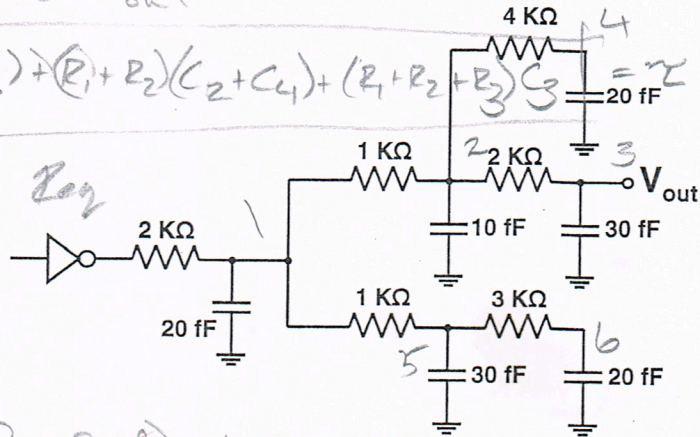 4 KΩ 4
)+(R₁+R₂)(C₂+C₄)+(R₁+R₂+R₃)C₃ = τ
20 fF
1 KΩ 2 2 KΩ 3
Req
Vout
2 KΩ 1
10 fF 30 fF
1 KΩ 3 KΩ
20 fF
5 6
30 fF 20 fF